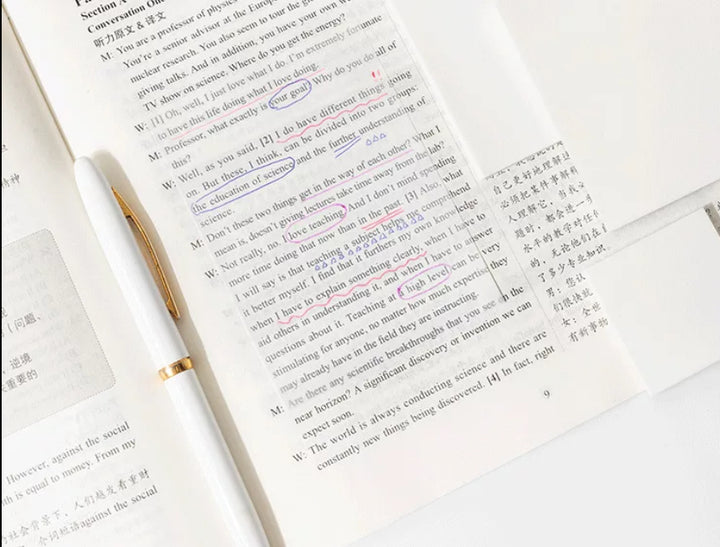 Section A
Conversation One
听力原文 & 译文
M: You are a professor of physics
You're a senior advisor at the Europe
nuclear research. You also seem to tour the
giving talks. And in addition, you have your own
TV show on science. Where do you get the energy?
W: [1] Oh, well, I just love what I do. I'm extremely fortunate
to have this life doing what I love doing.
M: Professor, what exactly is your goal? Why do you do all of
this?
W: Well, as you said, [2] I do have different things going
on. But these, I think, can be divided into two groups:
the education of science and the further understanding of
science.
M: Don't these two things get in the way of each other? What I
mean is, doesn't giving lectures take time away from the lab?
W: Not really, no. I love teaching. And I don't mind spending
more time doing that now than in the past. [3] Also, what
I will say is that teaching a subject helps me comprehend
it better myself. I find that it furthers my own knowledge
when I have to explain something clearly, when I have to
aid others in understanding it, and when I have to answer
questions about it. Teaching at a high level can be very
stimulating for anyone, no matter how much expertise they
may already have in the field they are instructing.
M: Are there any scientific breakthroughs that you see on the
near horizon? A significant discovery or invention we can
expect soon.
W: The world is always conducting science and there are
constantly new things being discovered. [4] In fact, right
9
自己更好地理解这
必须把某件事解释
人理解它,
题时,都会进一步
水平的教学对任何
的,无论他们在
了多少专业知识
男:您认
们很快就
女:全世
有新事物
精神
(问题、
逆境
重要的
However, against the social
is equal to money. From my
社会背景下,人们越发看重财
介词短语against the social